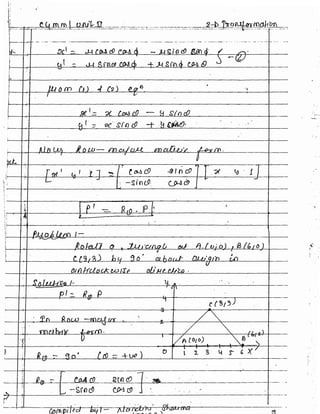 2-D Transformation
x' = r cos θ cos ϕ - r sin θ sin ϕ
y' = r sin θ cos ϕ + r sin ϕ cos θ } - ②
from (1) & (2) eqn
x' = x cos θ - y sin θ
y' = x sin θ + y
Now, Row-major matrix form
[x' y' 1] = [ cos θ sin θ
-sin θ cos θ ] [x y 1]
P' = Rθ . P
Problem 1-
Rotate a triangle at A(0,0), B(6,0)
C(3,3) by 90° about origin in
anticlockwise direction.
Solution:-
P' = Rθ P
In Row-major
matrix form.
Rθ = 90° (θ = +ve)
Rθ = [ cos θ sin θ
-sin θ cos θ ]
Y
C(3,3)
A(0,0)
B(6,0)
0 1 2 3 4 5 6 X
Compiled by:- Sharma